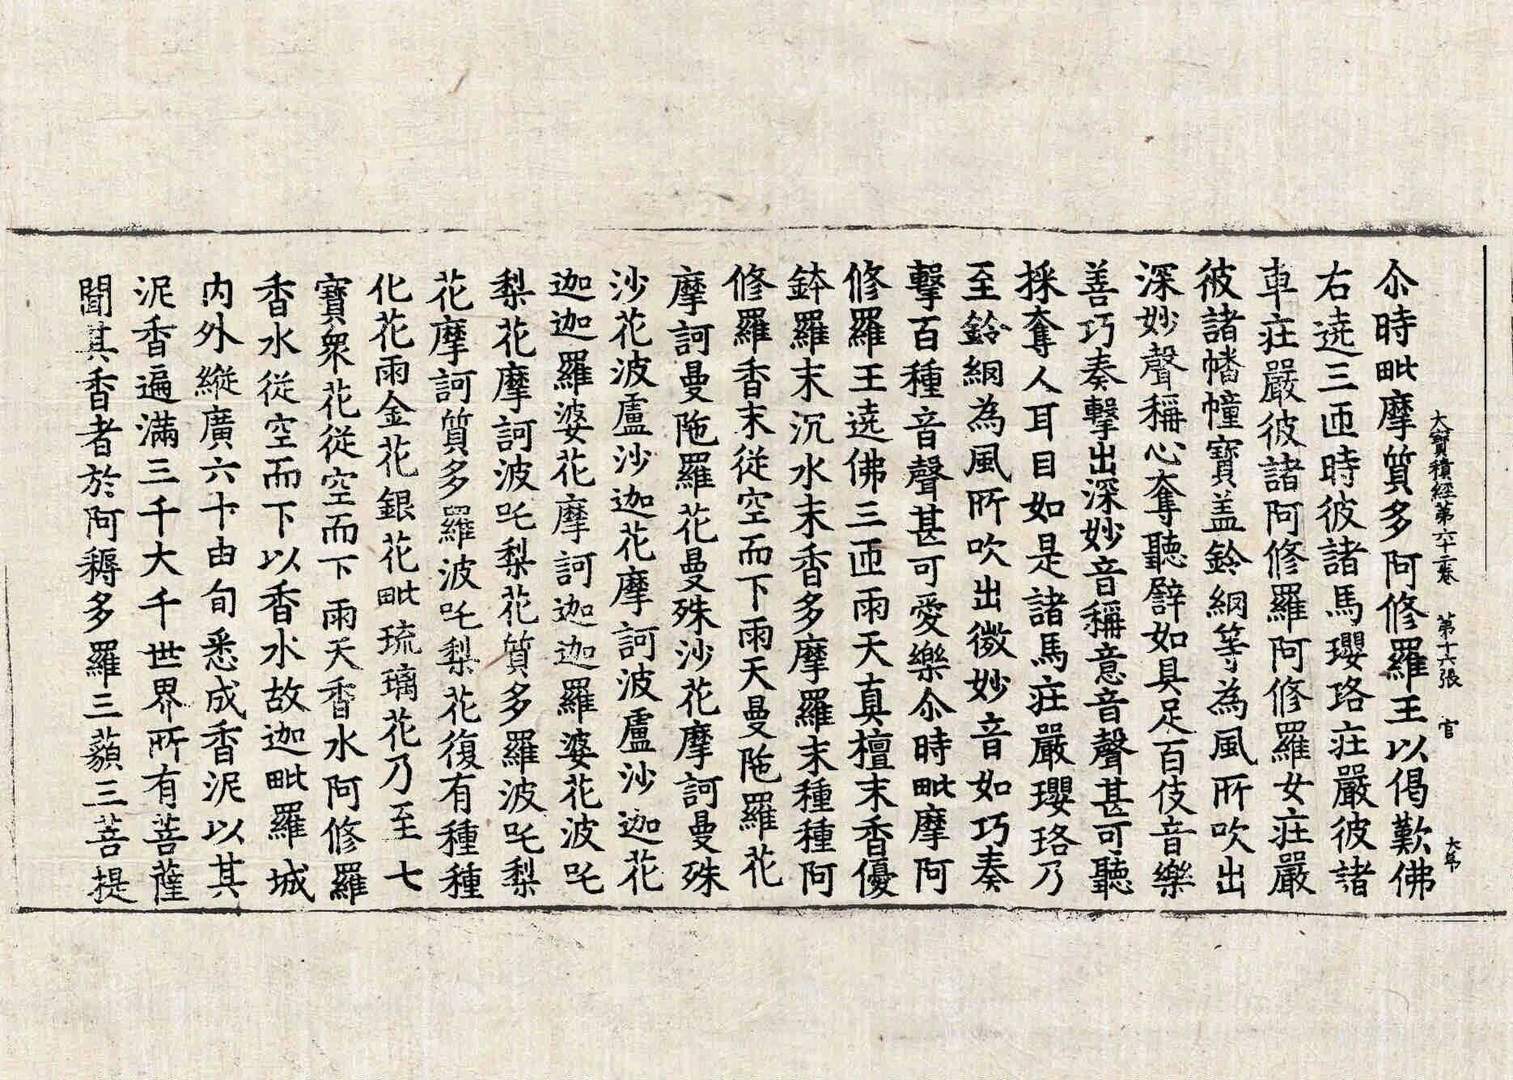 大寶積經第六十三卷　第十六張　官
尒時毗摩質多阿修羅王以偈歎佛
右遶三匝時彼諸馬瓔珞莊嚴彼諸
車莊嚴彼諸阿修羅阿修羅女莊嚴
彼諸幡幢寶盖鈴網等為風所吹出
深妙聲稱心奪聽譬如具足百伎音樂
善巧奏擊出深妙音稱意音聲甚可聽
採奪人耳目如是諸馬莊嚴瓔珞乃
至鈴網為風所吹出微妙音如巧奏
擊百種音聲甚可愛樂尒時毗摩阿
修羅王遶佛三匝雨天真檀末香優
鉢羅末沉水末香多摩羅末種種阿
修羅香末從空而下雨天曼陁羅花
摩訶曼陁羅花曼殊沙花摩訶曼殊
沙花波盧沙迦花摩訶波盧沙迦花
迦迦羅婆花摩訶迦迦羅婆花波吒
梨花摩訶波吒梨花質多羅波吒梨
花摩訶質多羅波吒梨花復有種種
化花雨金花銀花毗琉璃花乃至七
寶衆花從空而下雨天香水阿修羅
香水從空而下以香水故迦毗羅城
内外縱廣六十由旬悉成香泥以其
泥香遍滿三千大千世界所有菩薩
聞其香者於阿耨多羅三藐三菩提